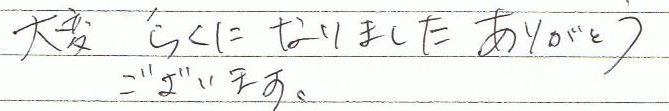 大変 らくになりました ありがとう
ございます。